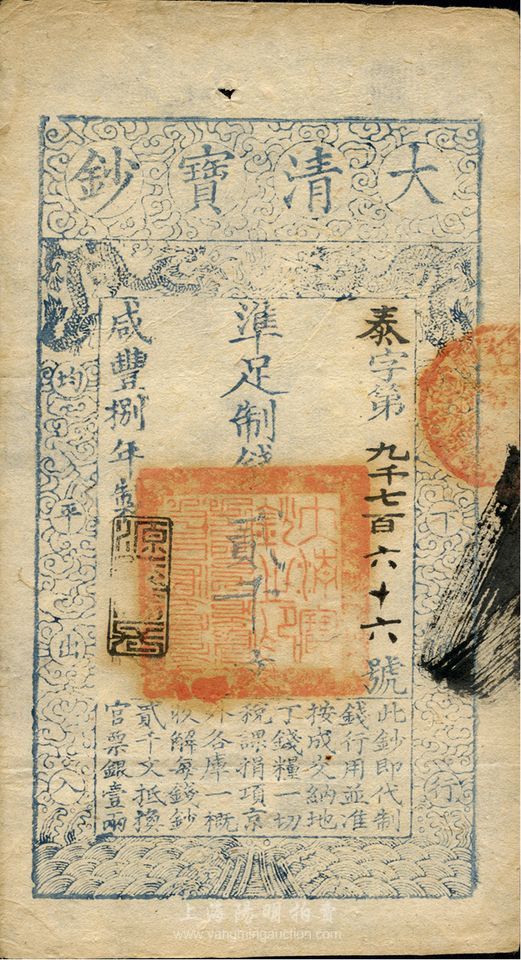 大清寶鈔
泰字第九千七百六十六號
準足制錢貳千文
咸豐捌年製
天下通行
均平出入
此鈔即代制
錢行用並准
按成交納地
丁錢糧一切
稅課捐項京
外各庫一概
收解每錢鈔
貳千文抵換
官票銀壹兩
上海陽明拍賣
www.yangmingauction.com